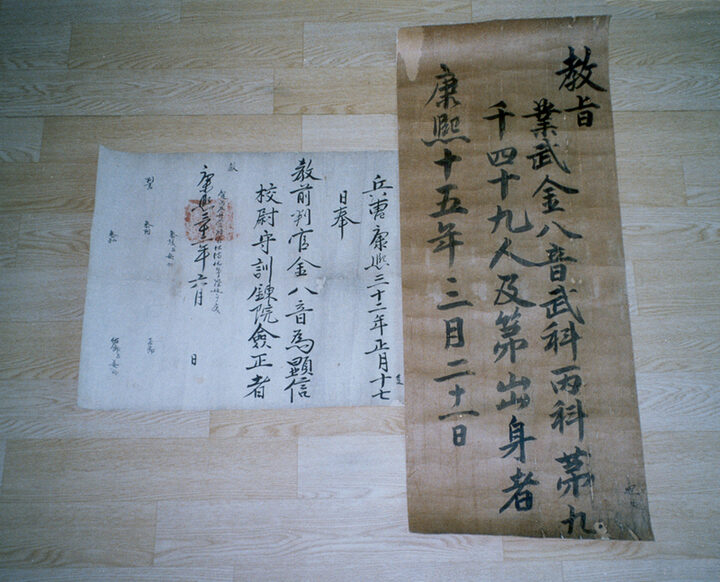 教旨
業武金八音武科丙科第九
千四十九人及第出身者
康熙十五年三月二十一日
兵曹康熙三十二年正月十七
日奉
教前判官金八音為顯信
校尉守訓鍊院僉正者
康熙三十二年六月 日